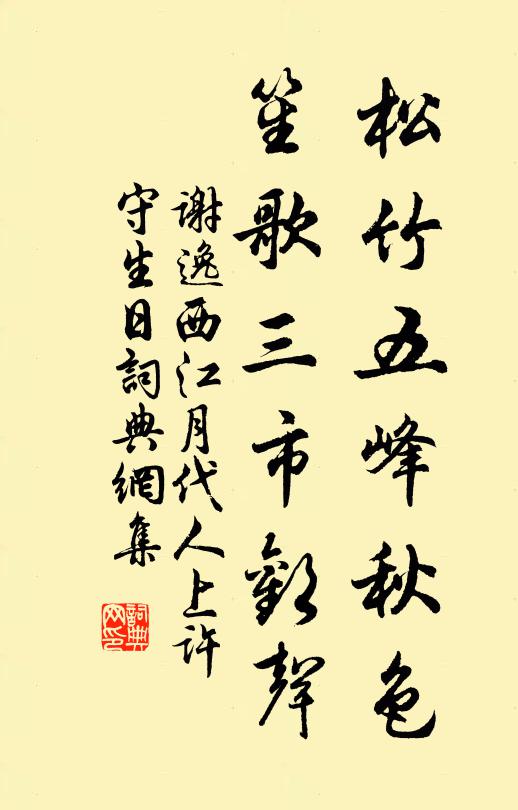 松竹五峰秋色
笙歌三市歡聲
謝逸西江月代人上許
守生日詞典網集
詞典網印